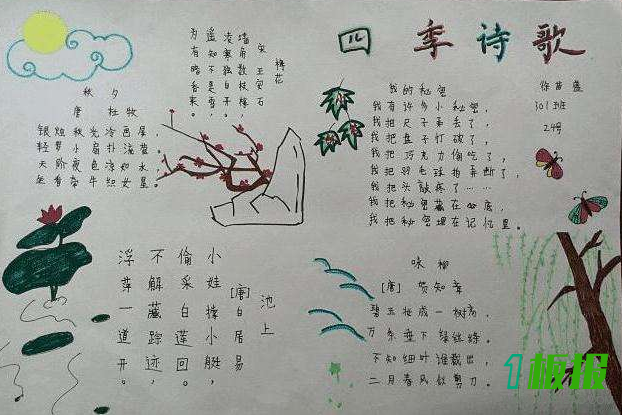 四季诗歌
秋夕
唐 杜牧
银烛秋光冷画屏,
轻罗小扇扑流萤。
天阶夜色凉如水,
坐看牵牛织女星。
梅花
宋 王安石
墙角数枝梅,
凌寒独自开。
遥知不是雪,
为有暗香来。
我的秘密
我有许多小秘密,
我把尺子弄丢了,
我把盘子打破了,
我把巧克力偷吃了,
我把羽毛球拍弄断了,
我把头敲疼了……
我把秘密藏在心底,
我把秘密埋在记忆里。
301班
24号
池上
[唐]白居易
小娃撑小艇,
偷采白莲回。
不解藏踪迹,
浮萍一道开。
咏柳
[唐] 贺知章
碧玉妆成一树高,
万条垂下绿丝绦。
不知细叶谁裁出,
二月春风似剪刀。
1板报